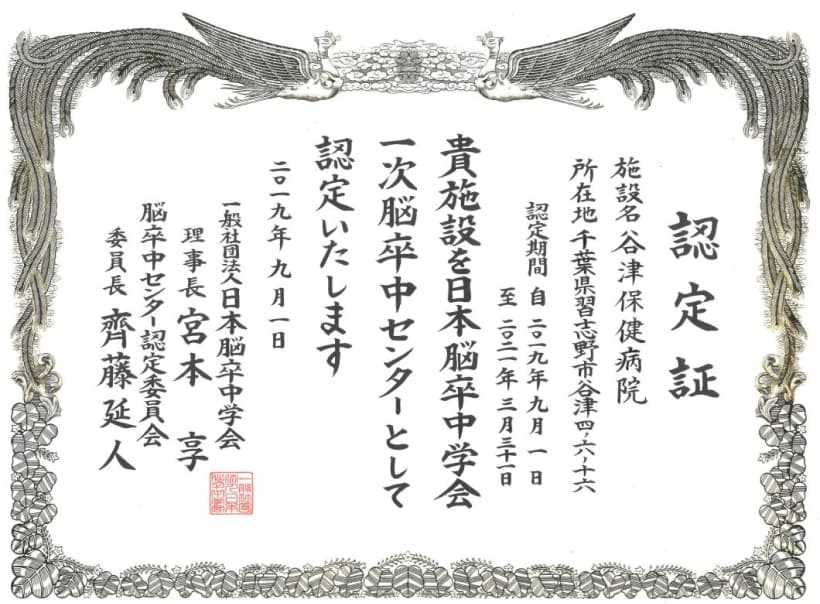 認定証
施設名 谷津保健病院
所在地 千葉県習志野市谷津四ー六ー十六
認定期間 自 二〇一九年 九月 一日
至 二〇二一年 三月三十一日
貴施設を日本脳卒中学会
一次脳卒中センターとして
認定いたします
二〇一九年 九月一日
一般社団法人日本脳卒中学会
理事長 宮本 享
脳卒中センター認定委員会
委員長 齊藤延人